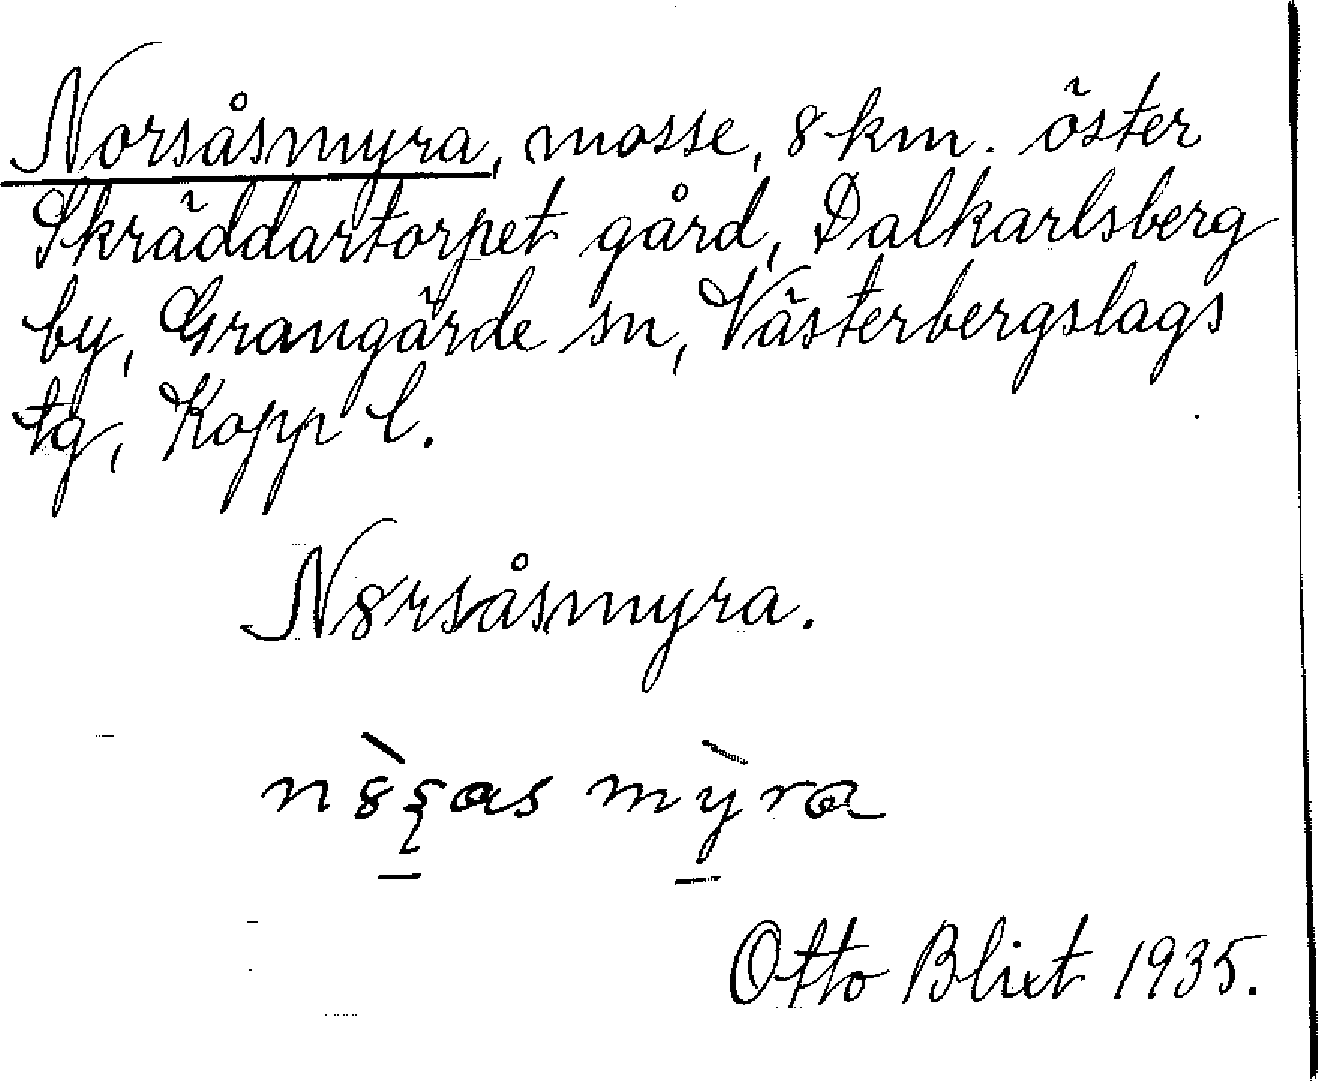 Norsåsmyra, mosse, 8 km. öster
Skräddartorpet gård, Dalkarlsberg
by, Grangärde sn, Västerbergslags
tg, Kopp l.
N8rsåsmyra.
n8̀ʂas mỳra
Otto Blixt 1935.